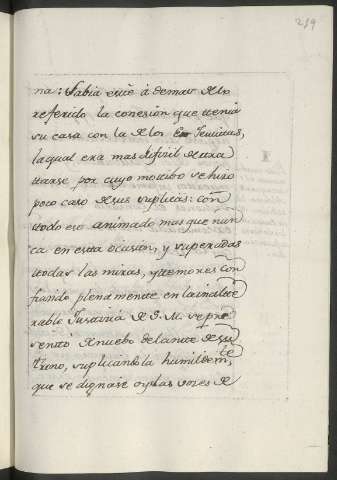 219
na: Sabia este á demas de lo
referido la conesion que tenia
su casa con la de los Jesuitas,
la qual era mas dificil de tra
tarse por cuyo motibo se hizo
poco caso de sus suplicas: con
todo eso animado mas que nun
ca en esta ocasion, y superadas
todas las miras, y temores con
fiando plenamente en la inalte
rable Justicia de S. M. se pre
sentó de nuebo delante de su
trono, suplicandola humildem.te
que se dignase oyr las voses de